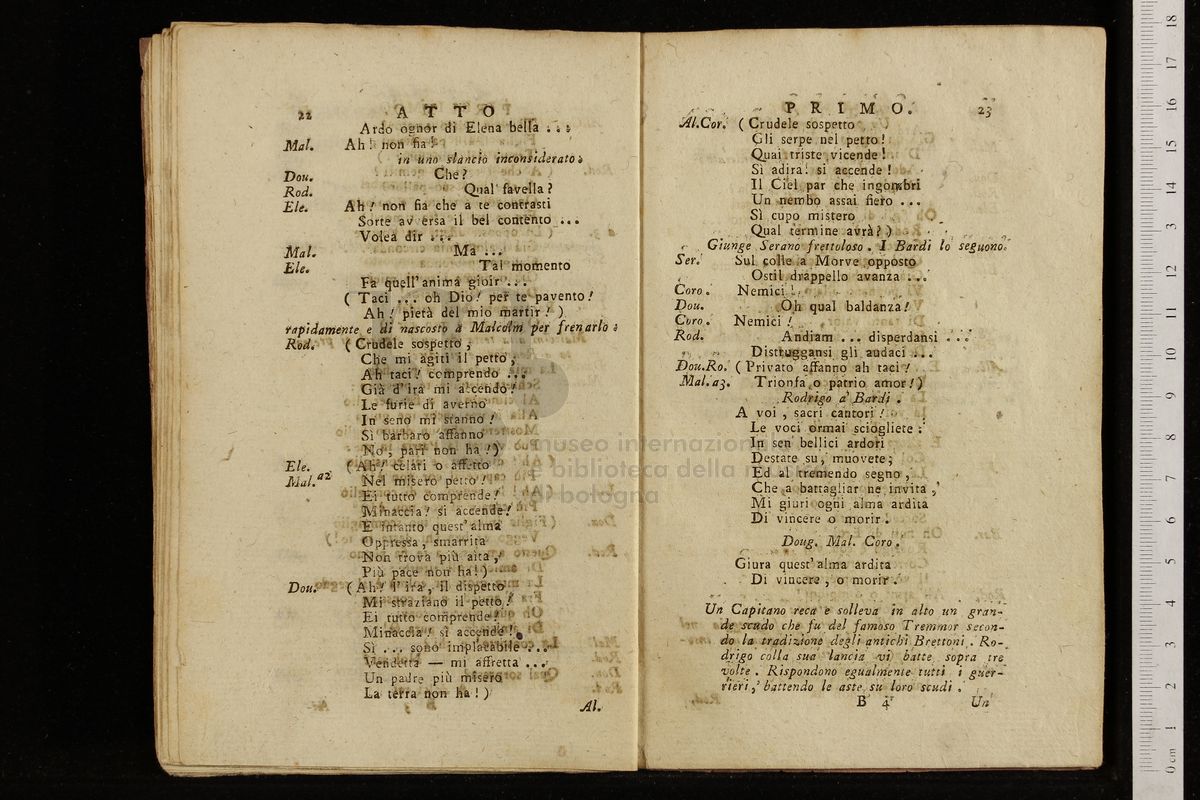 22 ATTO
Ardo ognor di Elena bella ...
Mal. Ah! non fia!
in uno slancio inconsiderato.
Dou. Che?
Rod. Qual favella?
Ele. Ah! non fia che a te contrasti
Sorte avversa il bel contento ...
Volea dir ...
Mal. Ma ...
Ele. Tal momento
Fa quell' anima gioir ...
( Taci ... oh Dio! per te pavento!
Ah! pietà del mio martir! )
rapidamente e di nascosto a Malcolm per frenarlo.
Rod. ( Crudele sospetto,
Che mi agiti il petto,
Ah taci! comprendo ...
Già d' ira mi accendo!
Le furie di averno
In seno mi stanno!
Sì barbaro affanno
No, pari non ha!)
Ele. ( Ah! celati o affetto
Mal. a2 Nel misero petto!
Ei tutto comprende!
Minaccia! si accende!
E intanto quest' alma
Oppressa, smarrita
Non trova più aita,
Più pace non ha!)
Dou. (Ah! l' ira, il dispetto
Mi straziano il petto!
Ei tutto comprende!
Minaccia! si accende!
Sì ... sono implacabile ...
Vendetta — mi affretta ...
Un padre più misero
La terra non ha!)
Al.
PRIMO. 23
Al.Cor. ( Crudele sospetto
Gli serpe nel petto!
Quai triste vicende!
Si adira! si accende!
Il Ciel par che ingombri
Un nembo assai fiero ...
Sì cupo mistero
Qual termine avrà? )
Giunge Serano frettoloso. I Bardi lo seguono.
Ser. Sul colle a Morve opposto
Ostil drappello avanza ...
Coro. Nemici!
Dou. Oh qual baldanza!
Coro. Nemici!
Rod. Andiam ... disperdansi ...
Distruggansi gli audaci ...
Dou.Ro. ( Privato affanno ah taci!
Mal. a3. Trionfa, o patrio amor!)
Rodrigo a' Bardi.
A voi, sacri cantori!
Le voci ormai sciogliete:
In sen bellici ardori
Destate su, muovete;
Ed al tremendo segno,
Che a battagliar ne invita,
Mi giuri ogni alma ardita
Di vincere o morir.
Doug. Mal. Coro.
Giura quest' alma ardita
Di vincere, o morir.
Un Capitano reca e solleva in alto un gran-
de scudo che fu del famoso Tremmor secon-
do la tradizione degli antichi Brettoni. Ro-
drigo colla sua lancia vi batte sopra tre
volte. Rispondono egualmente tutti i guer-
rieri, battendo le aste su loro scudi.
B 4 Un
museo internazionale
e biblioteca della musica
di bologna
0 cm 1 2 3 4 5 6 7 8 9 10 11 12 13 14 15 16 17 18